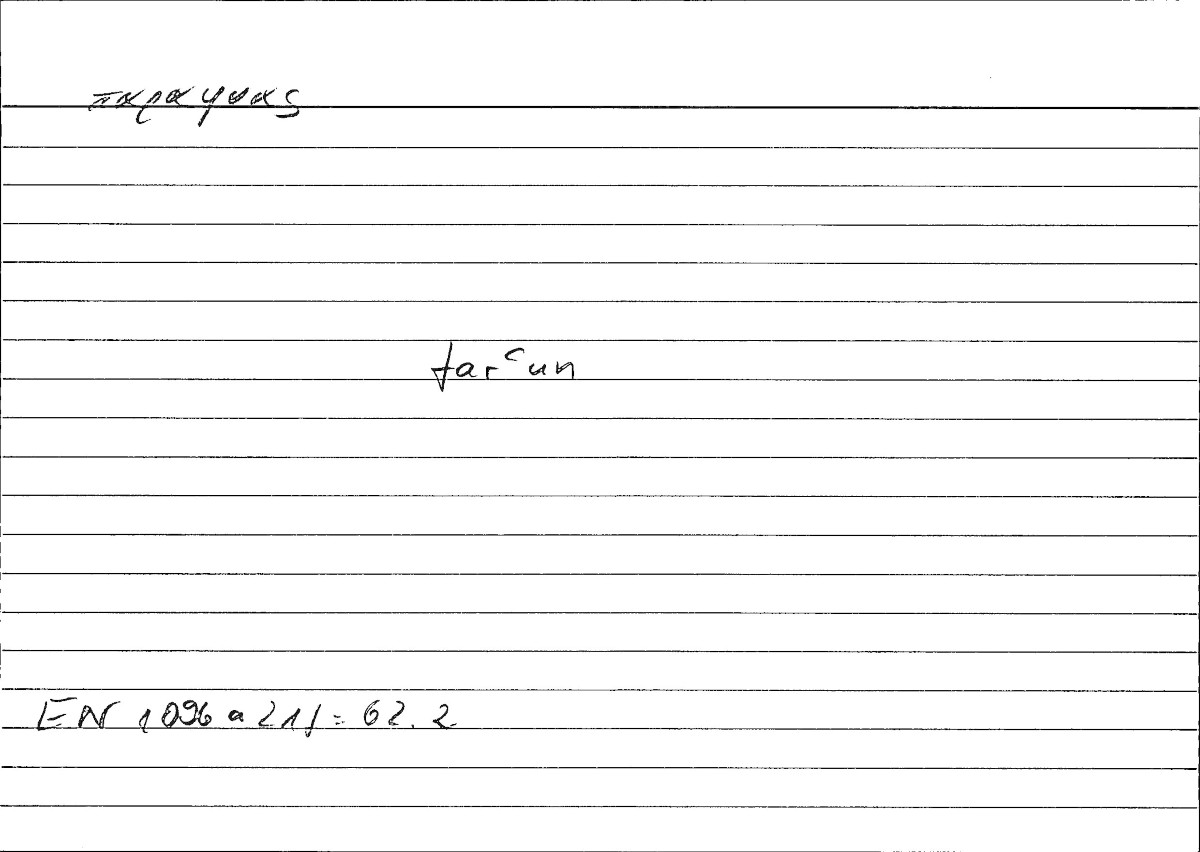 παραφυας
farʿun
EN 1096 a 21 f = 62.2